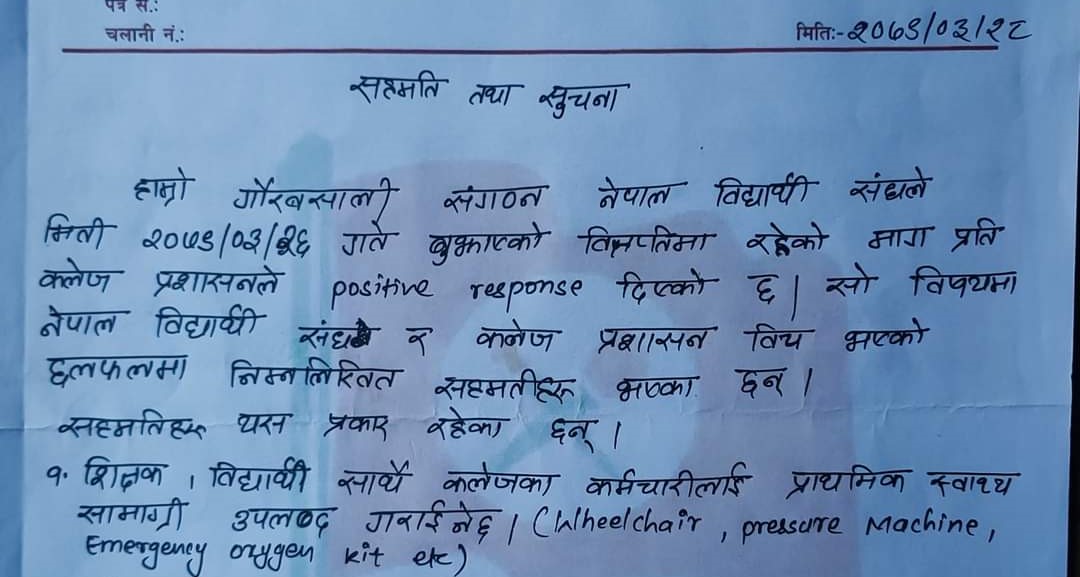 पत्र सं.:
चलानी नं.:
मितिः- २०७९/०३/२८
सहमति तथा सुचना
हाम्रो गौरबसाली संगठन नेपाल विद्यार्थी संघले
मिती २०७९/०३/२६ गते बुझाएको विज्ञप्तिमा रहेको माग प्रति
कलेज प्रशासनले positive response दिएको छ । सो विषयमा
नेपाल विद्यार्थी संघ र कलेज प्रशासन विच भएको
छलफलमा निम्नलिखित सहमतीहरू भएका छन् ।
सहमतिहरू यस प्रकार रहेका छन् ।
१. शिक्षक , विद्यार्थी साथै कलेजका कर्मचारीलाई प्राथमिक स्वाथ्य
सामाग्री उपलब्द गराईनेछ । (Wheelchair , pressure Machine,
Emergency oxygen kit etc)